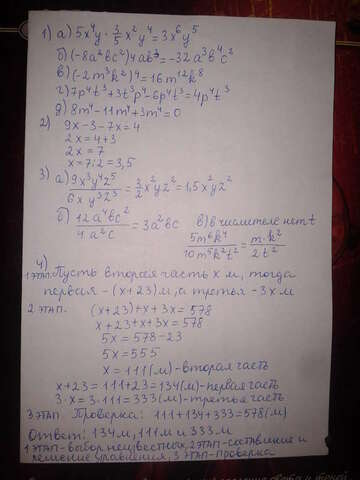 1) а) 5x⁴y · 3/5 x²y⁴ = 3x⁶y⁵
б) (-8a²bc²)4ab³ = -32a³b⁴c²
в) (-2m³k²)⁴ = 16m¹²k⁸
г) 7p⁴t³ + 3t³p⁴ - 6p⁴t³ = 4p⁴t³
д) 8m⁴ - 11m⁴ + 3m⁴ = 0
2) 9x - 3 - 7x = 4
2x = 4+3
2x = 7
x = 7:2 = 3,5
3) а) 9x³y⁴z⁵ / 6xy³z³ = 3/2 x²yz² = 1,5x²yz²
б) 12a⁴bc² / 4a²c = 3a²bc
в) в числителе нет t
5m⁶k⁴ / 10m⁵k²t² = m·k² / 2t²
4)
1 этап: Пусть вторая часть x м, тогда
первая - (x+23) м, а третья - 3x м
2 этап - (x+23)+x+3x = 578
x+23+x+3x = 578
5x = 578-23
5x = 555
x = 111(м) - вторая часть
x+23 = 111+23 = 134(м) - первая часть
3·x = 3·111 = 333(м) - третья часть
3 этап - Проверка: 111+134+333 = 578(м)
Ответ: 134 м, 111 м и 333 м.
1 этап - выбор неизвестных, 2 этап - составление и
решение уравнения, 3 этап - проверка